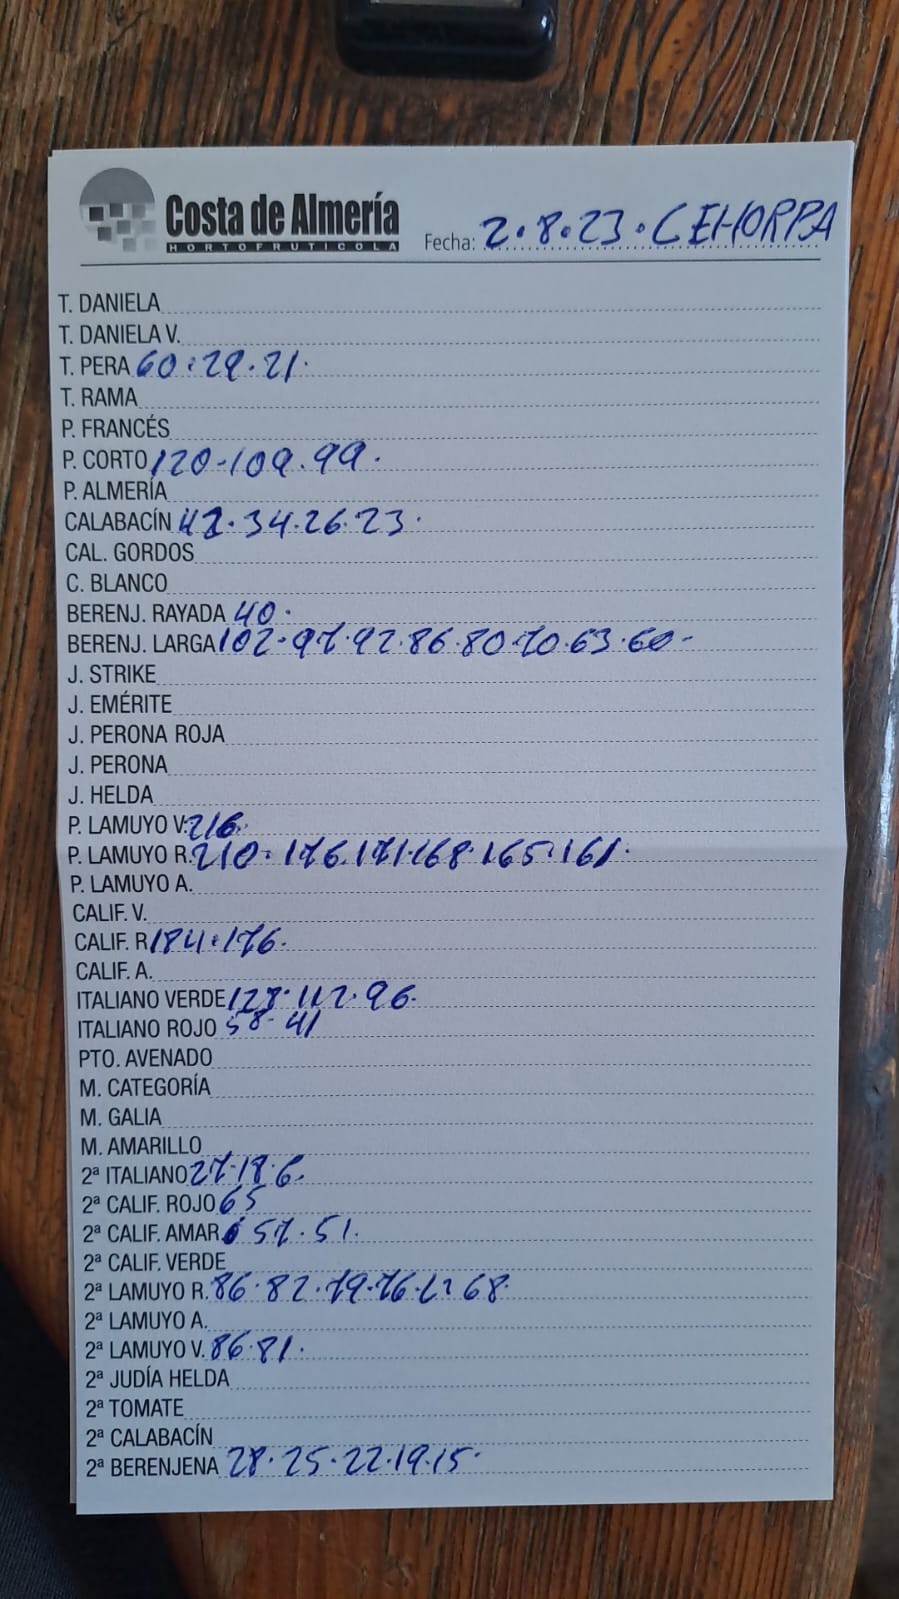 Costa de Almería
HORTOFRUTICOLA
Fecha: 2.8.23. CEHORPA
T. DANIELA
T. DANIELA V.
T. PERA 60.29.21.
T. RAMA
P. FRANCÉS
P. CORTO 120-109.99.
P. ALMERÍA
CALABACÍN 42.34.26.23.
CAL. GORDOS
C. BLANCO
BERENJ. RAYADA 40.
BERENJ. LARGA 102.97.92.86.80.70.63.60-
J. STRIKE
J. EMÉRITE
J. PERONA ROJA
J. PERONA
J. HELDA
P. LAMUYO V. 216.
P. LAMUYO R. 210.176.171.168.165.161.
P. LAMUYO A.
CALIF. V.
CALIF. R 184.176.
CALIF. A.
ITALIANO VERDE 128.112.96.
ITALIANO ROJO 58-41
PTO. AVENADO
M. CATEGORÍA
M. GALIA
M. AMARILLO
2ª ITALIANO 27.18.6.
2ª CALIF. ROJO 65
2ª CALIF. AMAR. 57.51.
2ª CALIF. VERDE
2ª LAMUYO R. 86.82.79.76. 68.
2ª LAMUYO A.
2ª LAMUYO V. 86.81.
2ª JUDÍA HELDA
2ª TOMATE
2ª CALABACÍN
2ª BERENJENA 28.25.22.19.15.